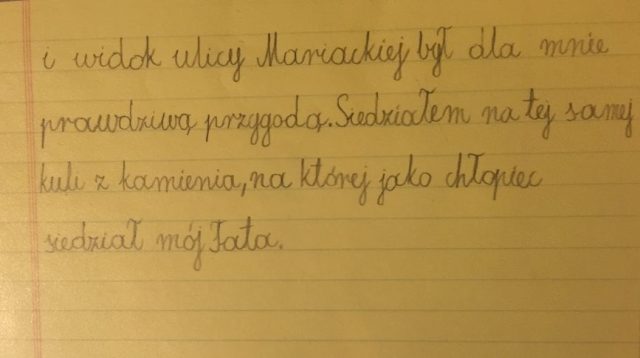 i widok ulicy Mariackiej był dla mnie
prawdziwą przygodą. Siedziałem na tej samej
kuli z kamienia, na której jako chłopiec
siedział mój Tata.